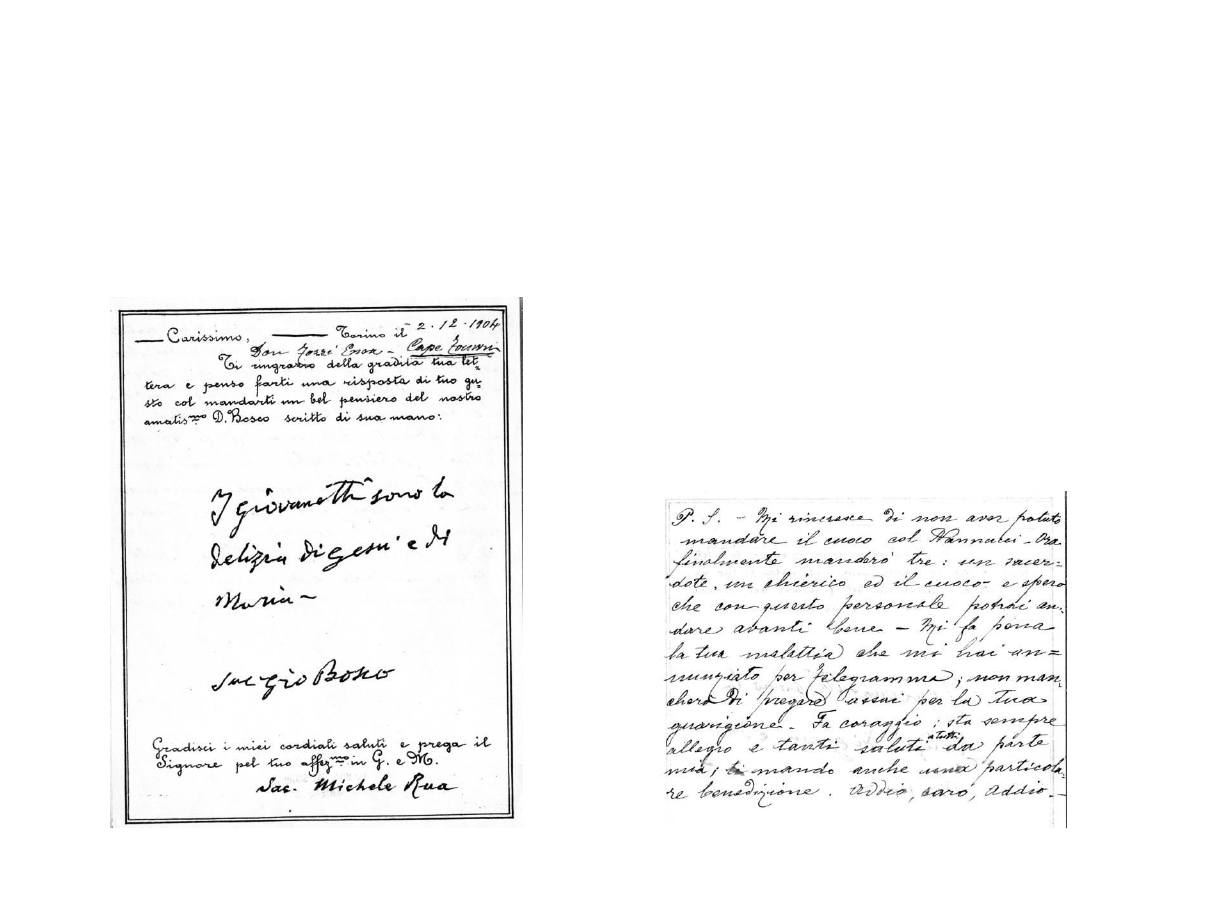 Carissimo, Torino il 2.12.1904
Don Tozzi Enea - Cape Town
Ti ringrazio della gradita tua let=
tera e penso farti una risposta di tuo gu=
sto col mandarti un bel pensiero del nostro
amatis.mo D. Bosco scritto di sua mano:
I giovanetti sono la
delizia di Gesù e di
Maria -
Sac Gio Bosco
Gradisci i miei cordiali saluti e prega il
Signore pel tuo affez.mo in G. e M.
Sac. Michele Rua
P. S. - Mi rincresce di non aver potuto
mandare il cuoco col Nannucci - Ora
finalmente manderò tre: un sacer=
dote, un chierico ed il cuoco - e spero
che con questo personale potrai an=
dare avanti bene - Mi fa pena
la tua malattia che mi hai an=
nunziato per telegramma; non man=
cherò di pregare assai per la tua
guarigione - Fa coraggio; sta sempre
allegro e tanti saluti a tutti da parte
mia; ti mando anche una particola=
re benedizione. Addio, caro, addio -